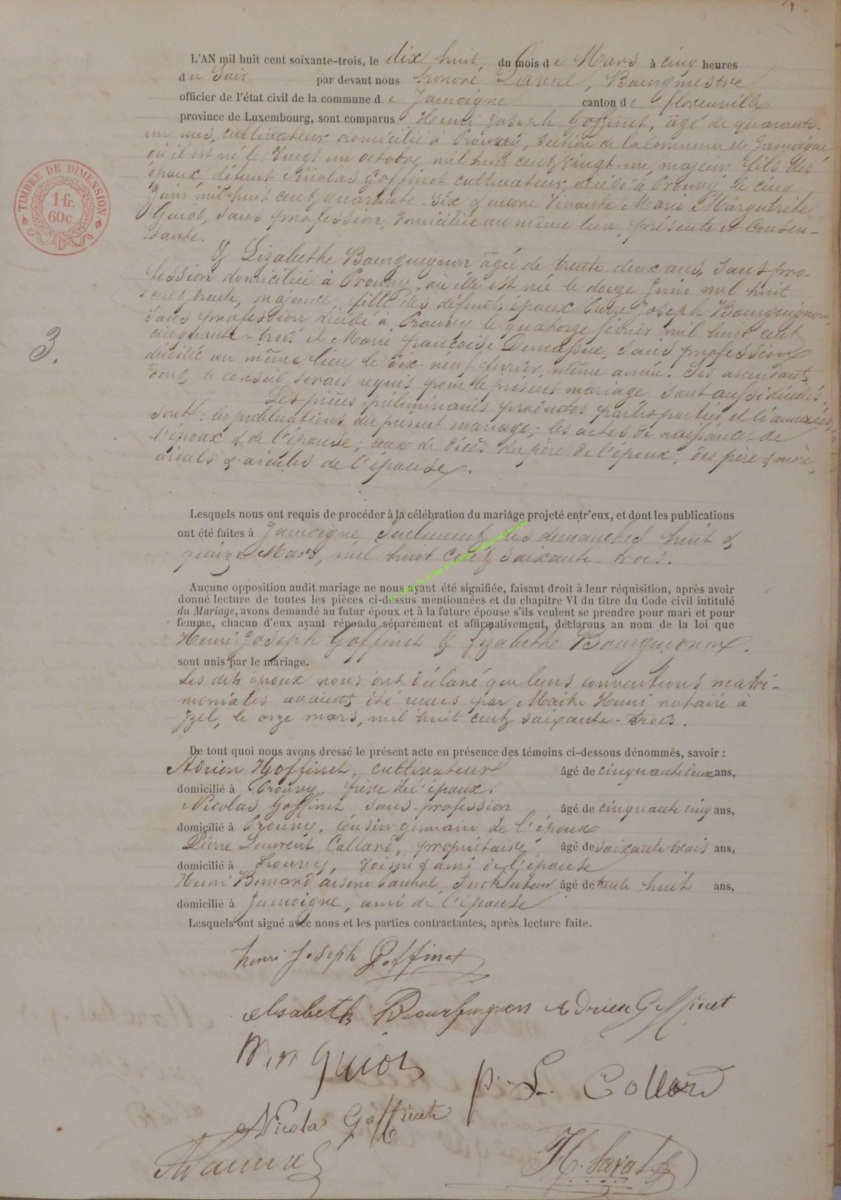 L'AN mil huit cent soixante-trois, le dix huit, du mois de Mars à cinq heures
du soir par devant nous honoré Laval, Bourgmestre
officier de l'état civil de la commune de Jamoigne canton de florenville
province de Luxembourg, sont comparus Henri Joseph Goffinet, âgé de quarante-
un ans, cultivateur domicilié à Prouvy, section de la commune de Jamoigne
où il est né le vingt un octobre mil huit cent vingt-un, majeur, fils des
époux, défunt Nicolas Goffinet cultivateur, décédé à Prouvy, le cinq
Juin mil huit cent quarante-six & encore vivante Marie Margueritte
Guiot, sans profession, domiciliée au même lieu, présente et consen-
tante.
TIMBRE DE DIMENSION
1 fr.
60c.
& Lizabethe Bourguignon âgée de trente-deux ans, sans pro-
fession domiciliée à Prouvy, où elle est née le douze Juin mil huit
cent trente, majeure, fille des défunts époux Joseph Bourguignon
sans profession décédé à Prouvy le quatorze février mil huit cent
3.
cinquante-trois et Marie françoise sans profession
décédée au même lieu le dix neuf février, même année. Les ascendants
dont le conseil serait requis pour le présent mariage, sont aussi décédés.
Les pièces préliminaires produites par les parties, et ci annexées
sont: les publications du présent mariage; les actes de naissance de
l'époux & de l'épouse; ceux de décès du père de l'époux, des père & mère,
aïeuls & aïeules de l'épouse.
Lesquels nous ont requis de procéder à la célébration du mariage projeté entr'eux, et dont les publications
ont été faites à Jamoigne, seulement les dimanches huit &
quinze Mars, mil huit cent soixante-trois.
Aucune opposition audit mariage ne nous ayant été signifiée, faisant droit à leur réquisition, après avoir
donné lecture de toutes les pièces ci-dessus mentionnées et du chapitre VI du titre du Code civil intitulé
du Mariage, avons demandé au futur époux et à la future épouse s'ils veulent se prendre pour mari et pour
femme, chacun d'eux ayant répondu séparément et affirmativement, déclarons au nom de la loi que
Henri Joseph Goffinet & Lizabethe Bourguignon
sont unis par le mariage.
Les dits époux nous ont déclaré que leurs conventions matri-
moniales avaient été reçues par Maître Henri notaire à
Izel, le onze mars, mil huit cent soixante-trois.
De tout quoi nous avons dressé le présent acte en présence des témoins ci-dessous dénommés, savoir :
Adrien Goffinet, cultivateur âgé de cinquante deux ans,
domicilié à Prouvy, frère de l'époux.
Nicolas Goffinet, sans profession âgé de cinquante cinq ans,
domicilié à Prouvy, cousin germain de l'époux
Pierre Laurent Collard, propriétaire âgé de soixante-trois ans,
domicilié à Prouvy, voisin & ami de l'épouse
Henri Bernard arsène Instituteur âgé de trente huit ans,
domicilié à Jamoigne, ami de l'épouse
Lesquels ont signé avec nous et les parties contractantes, après lecture faite.
henri Joseph Goffinet
elsabeth Bourguignon Adrien Goffinet
Guiot
p. L. Collard
Nicolas Goffinete
H. Laval